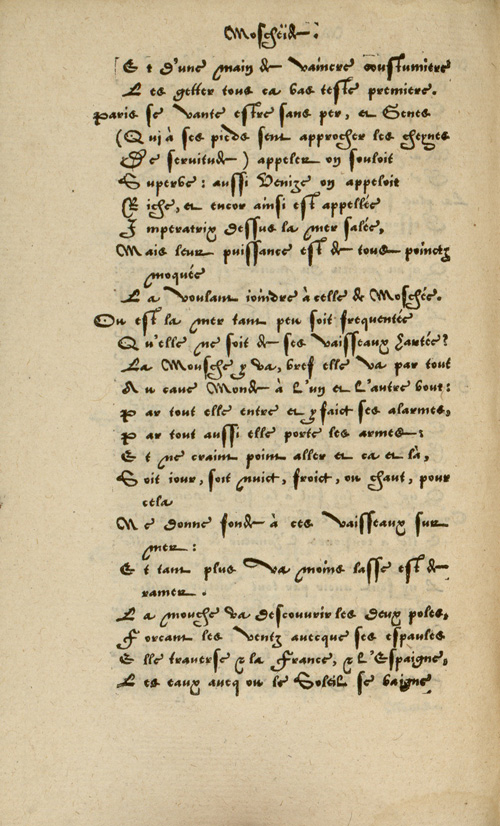 Moscheïde.
Et d'une main de vaincre coustumiere
Les getter tous ça bas teste premiere.
Paris se vante estre sans per, et Genes
(Qui à ses pieds sent approcher les cheynes
De servitude) appeler on souloit
Superbe: aussi Venize on appeloit
Riche, et encor ainsi est appellée
Imperatrix dessus la mer salée,
Mais leur puissance est de tous poinctz
moquée
La voulant ioindre à celle de Moschée.
Ou est la mer tant peu soit frequentée
Qu'elle ne soit de ses vaisseaux hartée?
La Mousche y va, bref elle va par tout
Au cave Monde à l'un et l'autre bout:
Par tout elle entre et y faict ses alarmes,
Par tout aussi elle porte les armes:
Et ne craint point aller et ça et là,
Soit iour, soit nuict, froict, ou chaut, pour
cela
Ne donne fonde à ces vaisseaux sur
mer:
Et tant plus va moins lasse est de
ramer.
La mouche va descouvrir les deux poles,
Forçant les ventz avecque ses espaules
Elle traverse & la France, & l'Espaigne,
Les eaux avecq ou le Soleil se baigne